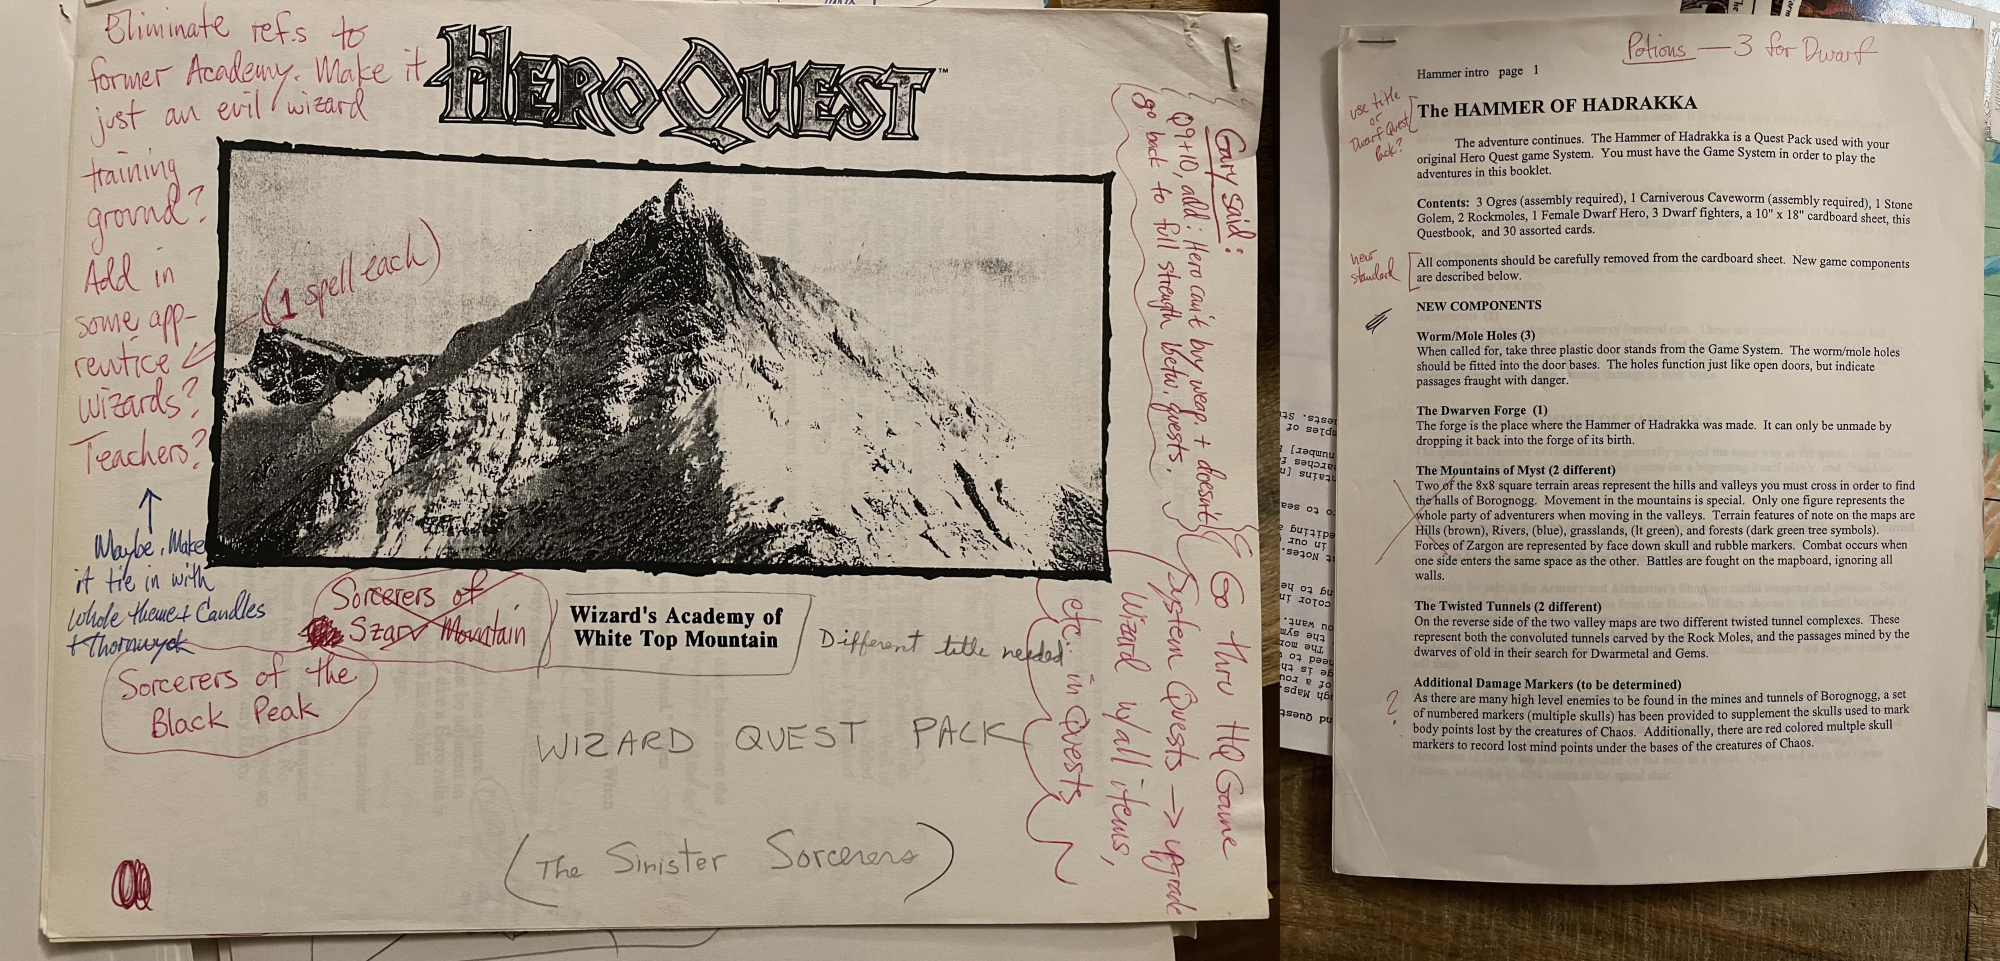 Eliminate refs to
former Academy. Make it
just an evil wizard
training
ground?
Add in
some app-
rentice
wizards?
Teachers?
(1 spell each)
Maybe, Make
it tie in with
whole theme + Candles
+ Thornwyck
HEROQUEST™
Sorcerers of
Szar Mountain
Sorcerers of the
Black Peak
Wizard's Academy of
White Top Mountain
Different title needed
WIZARD QUEST PACK
(The Sinister Sorcerers)
Gary said:
Q9+10, add: Hero can't buy weap. + doesn't
go back to full strength betw. quests.
Go thru HQ Game
System Quests → upgrade
Wizard w/all items,
etc. in Quests
Potions — 3 for Dwarf
Hammer intro page 1
use title
or
Dwarf Quest
Pack?
The HAMMER OF HADRAKKA
The adventure continues. The Hammer of Hadrakka is a Quest Pack used with your
original Hero Quest game System. You must have the Game System in order to play the
adventures in this booklet.
Contents: 3 Ogres (assembly required), 1 Carniverous Caveworm (assembly required), 1 Stone
Golem, 2 Rockmoles, 1 Female Dwarf Hero, 3 Dwarf fighters, a 10" x 18" cardboard sheet, this
Questbook, and 30 assorted cards.
new
standard
All components should be carefully removed from the cardboard sheet. New game components
are described below.
NEW COMPONENTS
Worm/Mole Holes (3)
When called for, take three plastic door stands from the Game System. The worm/mole holes
should be fitted into the door bases. The holes function just like open doors, but indicate
passages fraught with danger.
The Dwarven Forge (1)
The forge is the place where the Hammer of Hadrakka was made. It can only be unmade by
dropping it back into the forge of its birth.
The Mountains of Myst (2 different)
Two of the 8x8 square terrain areas represent the hills and valleys you must cross in order to find
the halls of Borognogg. Movement in the mountains is special. Only one figure represents the
whole party of adventurers when moving in the valleys. Terrain features of note on the maps are
Hills (brown), Rivers, (blue), grasslands, (lt green), and forests (dark green tree symbols).
Forces of Zargon are represented by face down skull and rubble markers. Combat occurs when
one side enters the same space as the other. Battles are fought on the mapboard, ignoring all
walls.
The Twisted Tunnels (2 different)
On the reverse side of the two valley maps are two different twisted tunnel complexes. These
represent both the convoluted tunnels carved by the Rock Moles, and the passages mined by the
dwarves of old in their search for Dwarmetal and Gems.
Additional Damage Markers (to be determined)
?
As there are many high level enemies to be found in the mines and tunnels of Borognogg, a set
of numbered markers (multiple skulls) has been provided to supplement the skulls used to mark
body points lost by the creatures of Chaos. Additionally, there are red colored multple skull
markers to record lost mind points under the bases of the creatures of Chaos.